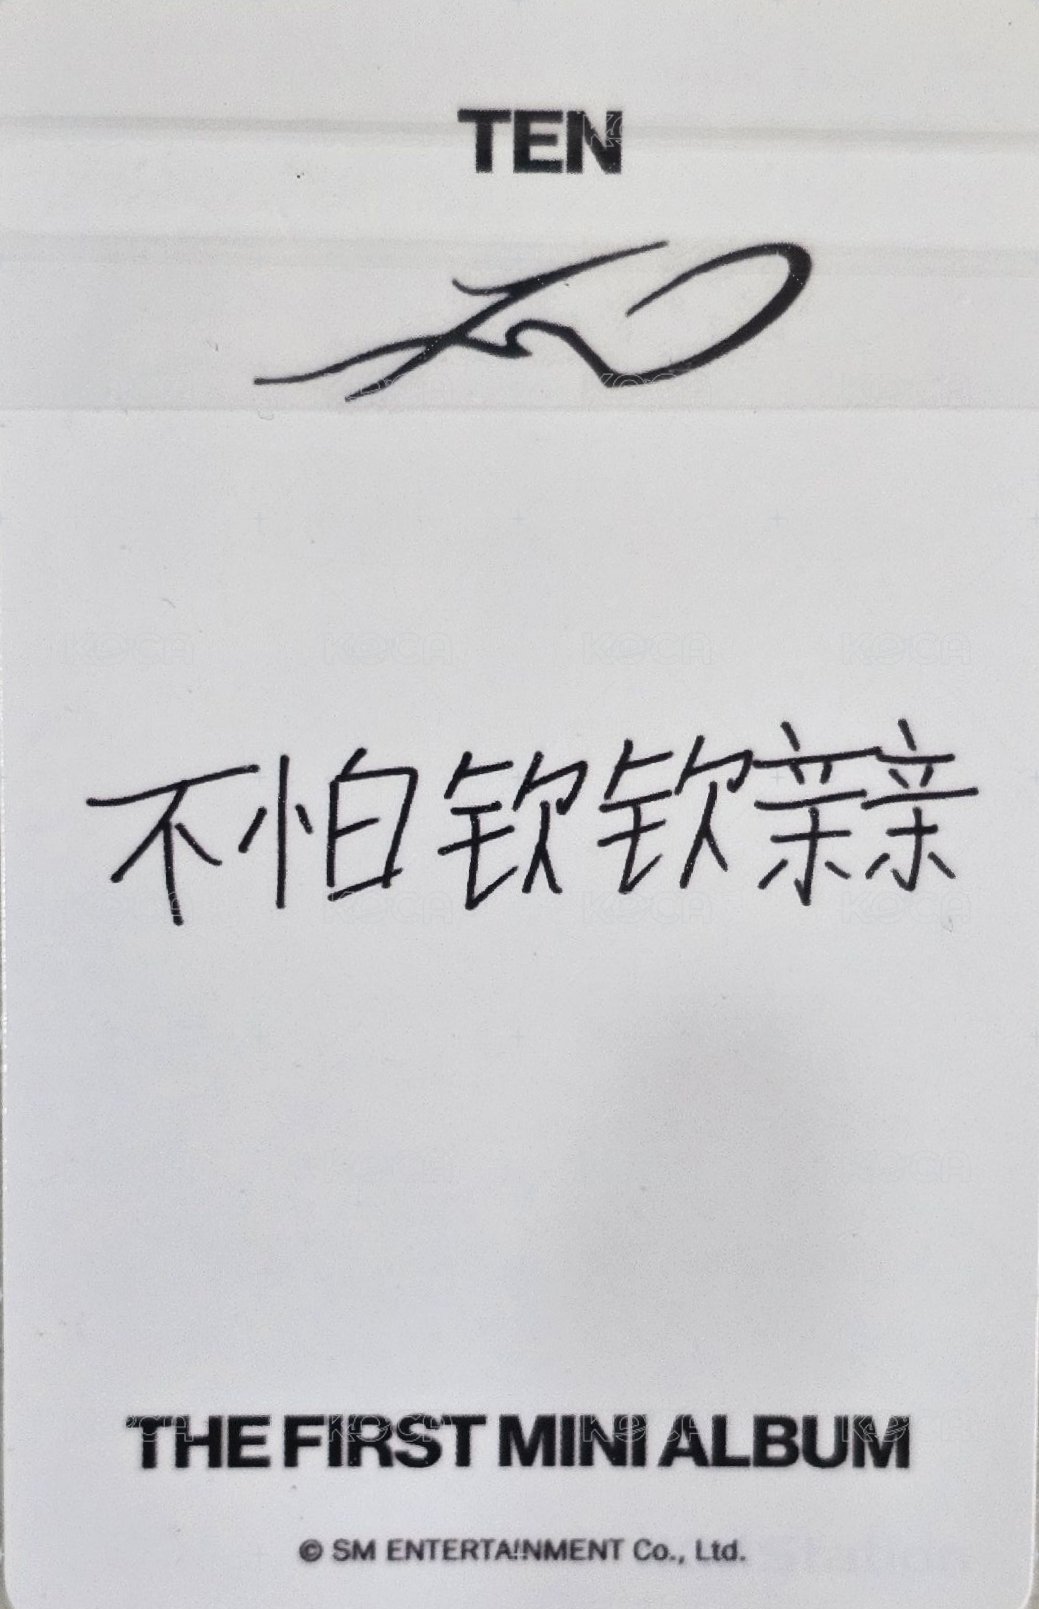 TEN
不怕钦钦亲亲
THE FIRST MINI ALBUM
© SM ENTERTAINMENT Co., Ltd.